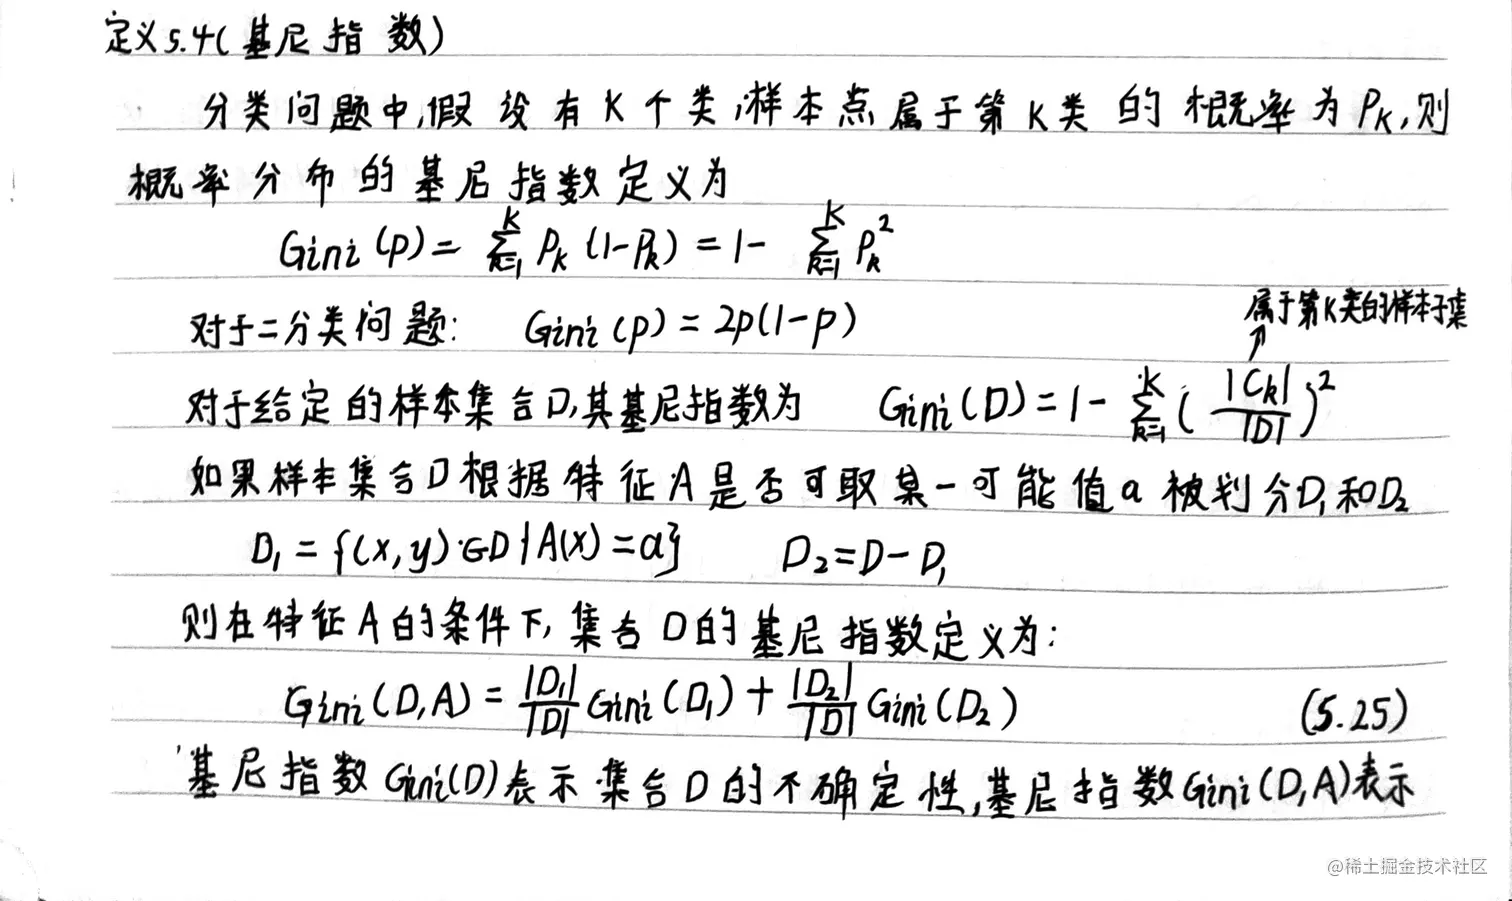 定义5.4(基尼指数)
分类问题中,假设有K个类,样本点属于第K类的概率为Pk,则
概率分布的基尼指数定义为
Gini(p)= ∑_{k=1}^{K} Pk(1-Pk)=1- ∑_{k=1}^{K} Pk²
属于第K类的样本子集
对于二分类问题: Gini(p)=2p(1-p)
对于给定的样本集合D,其基尼指数为 Gini(D)=1- ∑_{k=1}^{K} (|Ck|/|D|)²
如果样本集合D根据特征A是否可取某一可能值a被划分D₁和D₂
D₁={(x,y)∈D|A(x)=a} D₂=D-D₁
则在特征A的条件下,集合D的基尼指数定义为:
Gini(D,A)=|D₁|/|D| Gini(D₁)+|D₂|/|D| Gini(D₂) (5.25)
基尼指数Gini(D)表示集合D的不确定性,基尼指数Gini(D,A)表示
@稀土掘金技术社区